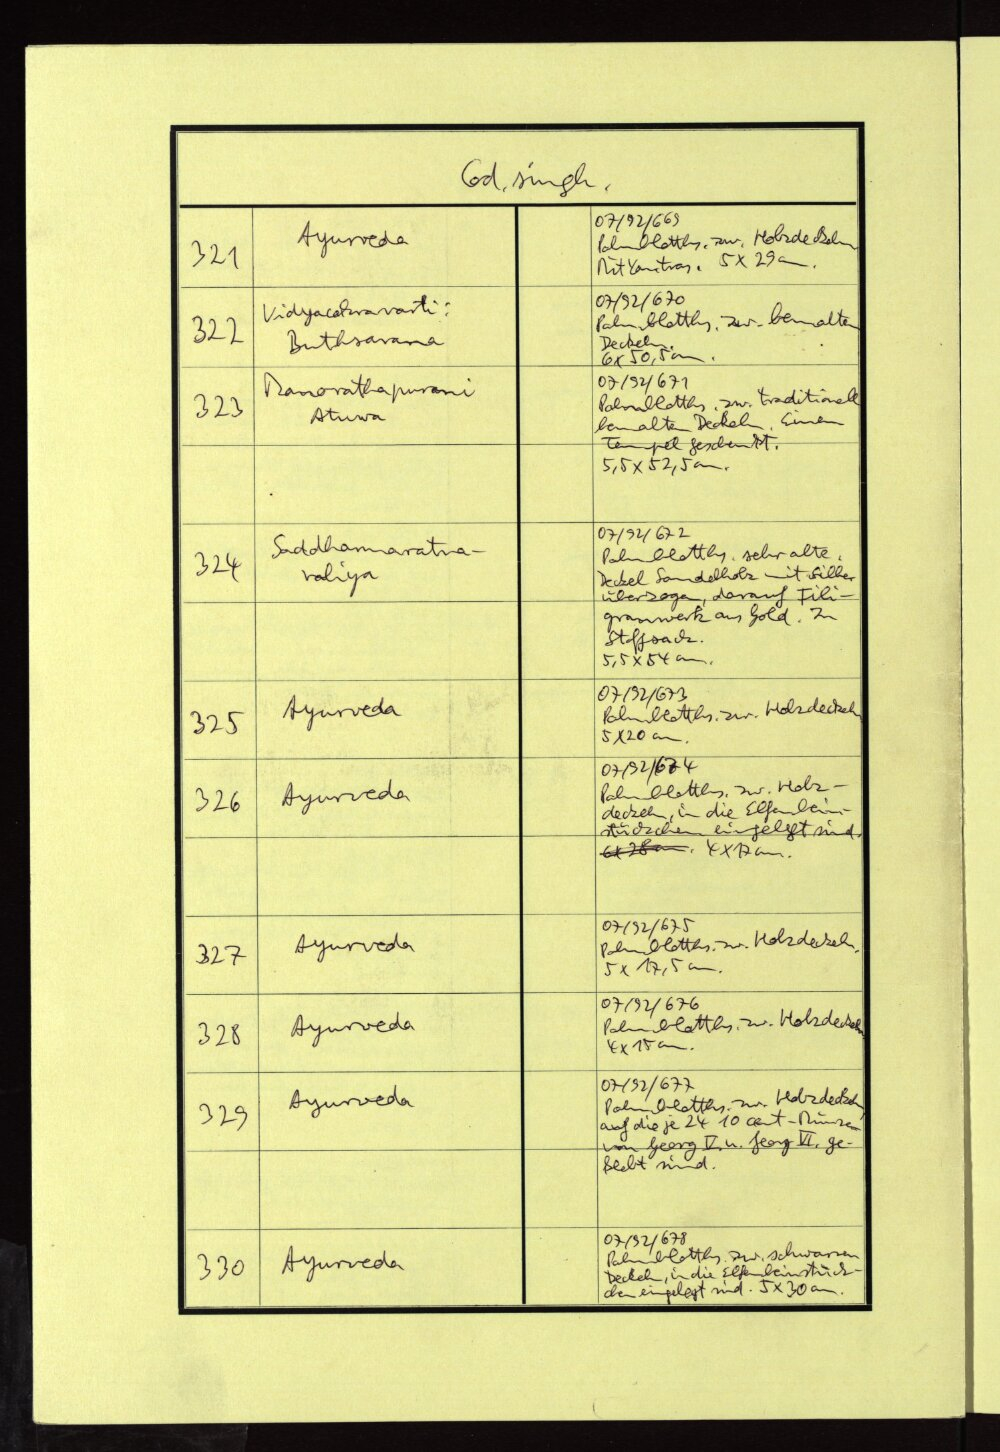 Cod. singh.
321
Ayurveda
07/92/669
Palmblatths. zw. Holzdeckeln
Mit Yantras. 5 x 29 cm.
322
Vidyacakravarti:
Buthsarana
07/92/670
Palmblatths. zw. bemalten
Deckeln.
6 x 50,5 cm.
323
Manorathapurani
Atuwa
07/92/671
Palmblatths. zw. traditionell
bemalten Deckeln. Einem
Tempel geschenkt.
5,5 x 52,5 cm.
324
Saddharmaratna-
valiya
07/92/672
Palmblatths. sehr alte.
Deckel Sandelholz mit Silber
überzogen, darauf Fili-
granwerk aus Gold. In
Stoffsack.
5,5 x 54 cm.
325
Ayurveda
07/92/673
Palmblatths. zw. Holzdeckeln
5 x 20 cm.
326
Ayurveda
07/92/674
Palmblatths. zw. Holz-
deckeln, in die Elfenbein-
stückchen eingelegt sind.
6 x 28 cm. 4 x 17 cm.
327
Ayurveda
07/92/675
Palmblatths. zw. Holzdeckeln.
5 x 17,5 cm.
328
Ayurveda
07/92/676
Palmblatths. zw. Holzdeckeln
4 x 15 cm.
329
Ayurveda
07/92/677
Palmblatths. zw. Holzdeckeln,
auf die je 24 10 cent-Münzen
von Georg V. u. Georg VI. ge-
klebt sind.
330
Ayurveda
07/92/678
Palmblatths. zw. schwarzen
Deckeln, in die Elfenbeinstück-
chen eingelegt sind. 5 x 30 cm.